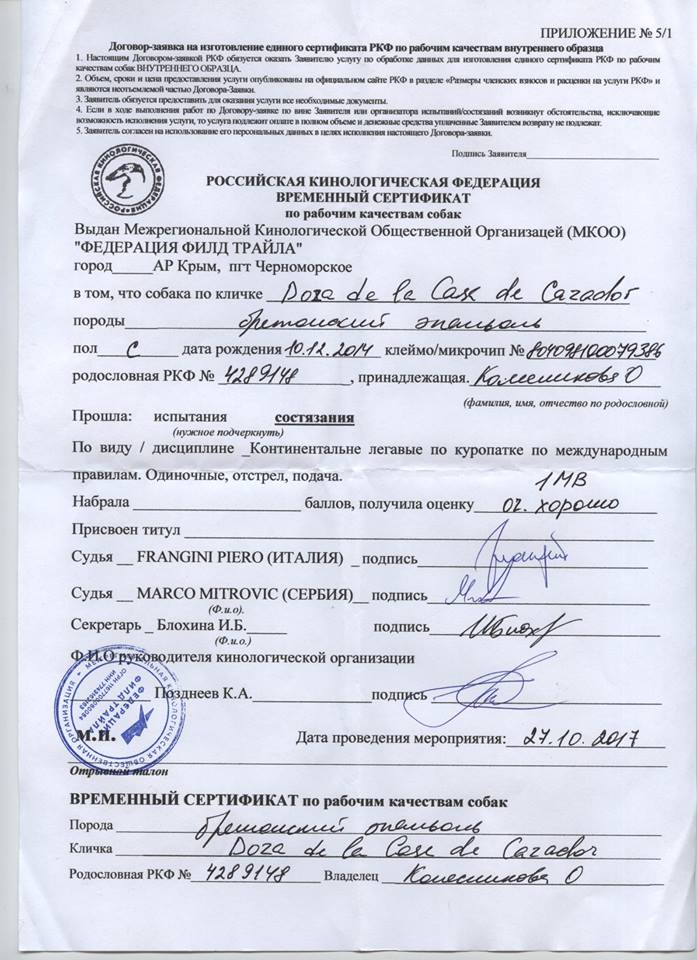 ПРИЛОЖЕНИЕ № 5/1
Договор-заявка на изготовление единого сертификата РКФ по рабочим качествам внутреннего образца
1. Настоящим Договором-заявкой РКФ обязуется оказать Заявителю услугу по обработке данных для изготовления единого сертификата РКФ по рабочим
качествам собак ВНУТРЕННЕГО ОБРАЗЦА.
2. Объем, сроки и цена предоставления услуги опубликованы на официальном сайте РКФ в разделе «Размеры членских взносов и расценки на услуги РКФ» и
являются неотъемлемой частью Договора-Заявки.
3. Заявитель обязуется предоставить для оказания услуги все необходимые документы.
4. Если в ходе выполнения работ по Договору-Заявке по вине Заявителя или организатора испытаний/состязаний возникнут обстоятельства, исключающие
возможность исполнения услуги, то услуга подлежит оплате в полном объеме и денежные средства уплаченные Заявителем возврату не подлежат.
5. Заявитель согласен на использование его персональных данных в целях исполнения настоящего Договора-заявки.
Подпись Заявителя
РОССИЙСКАЯ КИНОЛОГИЧЕСКАЯ ФЕДЕРАЦИЯ
РОССИЙСКАЯ КИНОЛОГИЧЕСКАЯ ФЕДЕРАЦИЯ
ВРЕМЕННЫЙ СЕРТИФИКАТ
по рабочим качествам собак
Выдан Межрегиональной Кинологической Общественной Организацей (МКОО)
"ФЕДЕРАЦИЯ ФИЛД ТРАЙЛА"
город_____АР Крым, пгт Черноморское
в том, что собака по кличке Doza de la Case de Cazador
породы бретонский эпаньоль
пол С дата рождения 10.12.2014 клеймо/микрочип № 804098100079386
родословная РКФ № 4289148, принадлежащая. Колесникова О
(фамилия, имя, отчество по родословной)
Прошла: испытания состязания
(нужное подчеркнуть)
По виду / дисциплине _Континентальне легавые по куропатке по международным
правилам. Одиночные, отстрел, подача.
1 МВ
Набрала баллов, получила оценку оч. хорошо
Присвоен титул
Судья __ FRANGINI PIERO (ИТАЛИЯ) _ подпись
Судья __ MARCO MITROVIC (СЕРБИЯ)__ подпись
(Ф.и.о).
Секретарь _ Блохина И.Б._____ подпись
(Ф.и.о.)
Ф.И.О руководителя кинологической организации
Позднеев К.А. подпись
ФЕДЕРАЦИЯ
ФИЛД ТРАЙЛА
М.П.
Дата проведения мероприятия: 27.10.2017
Отрывной талон
ВРЕМЕННЫЙ СЕРТИФИКАТ по рабочим качествам собак
Порода бретонский эпаньоль
Кличка Doza de la Case de Cazador
Родословная РКФ № 4289148 Владелец Колесникова О